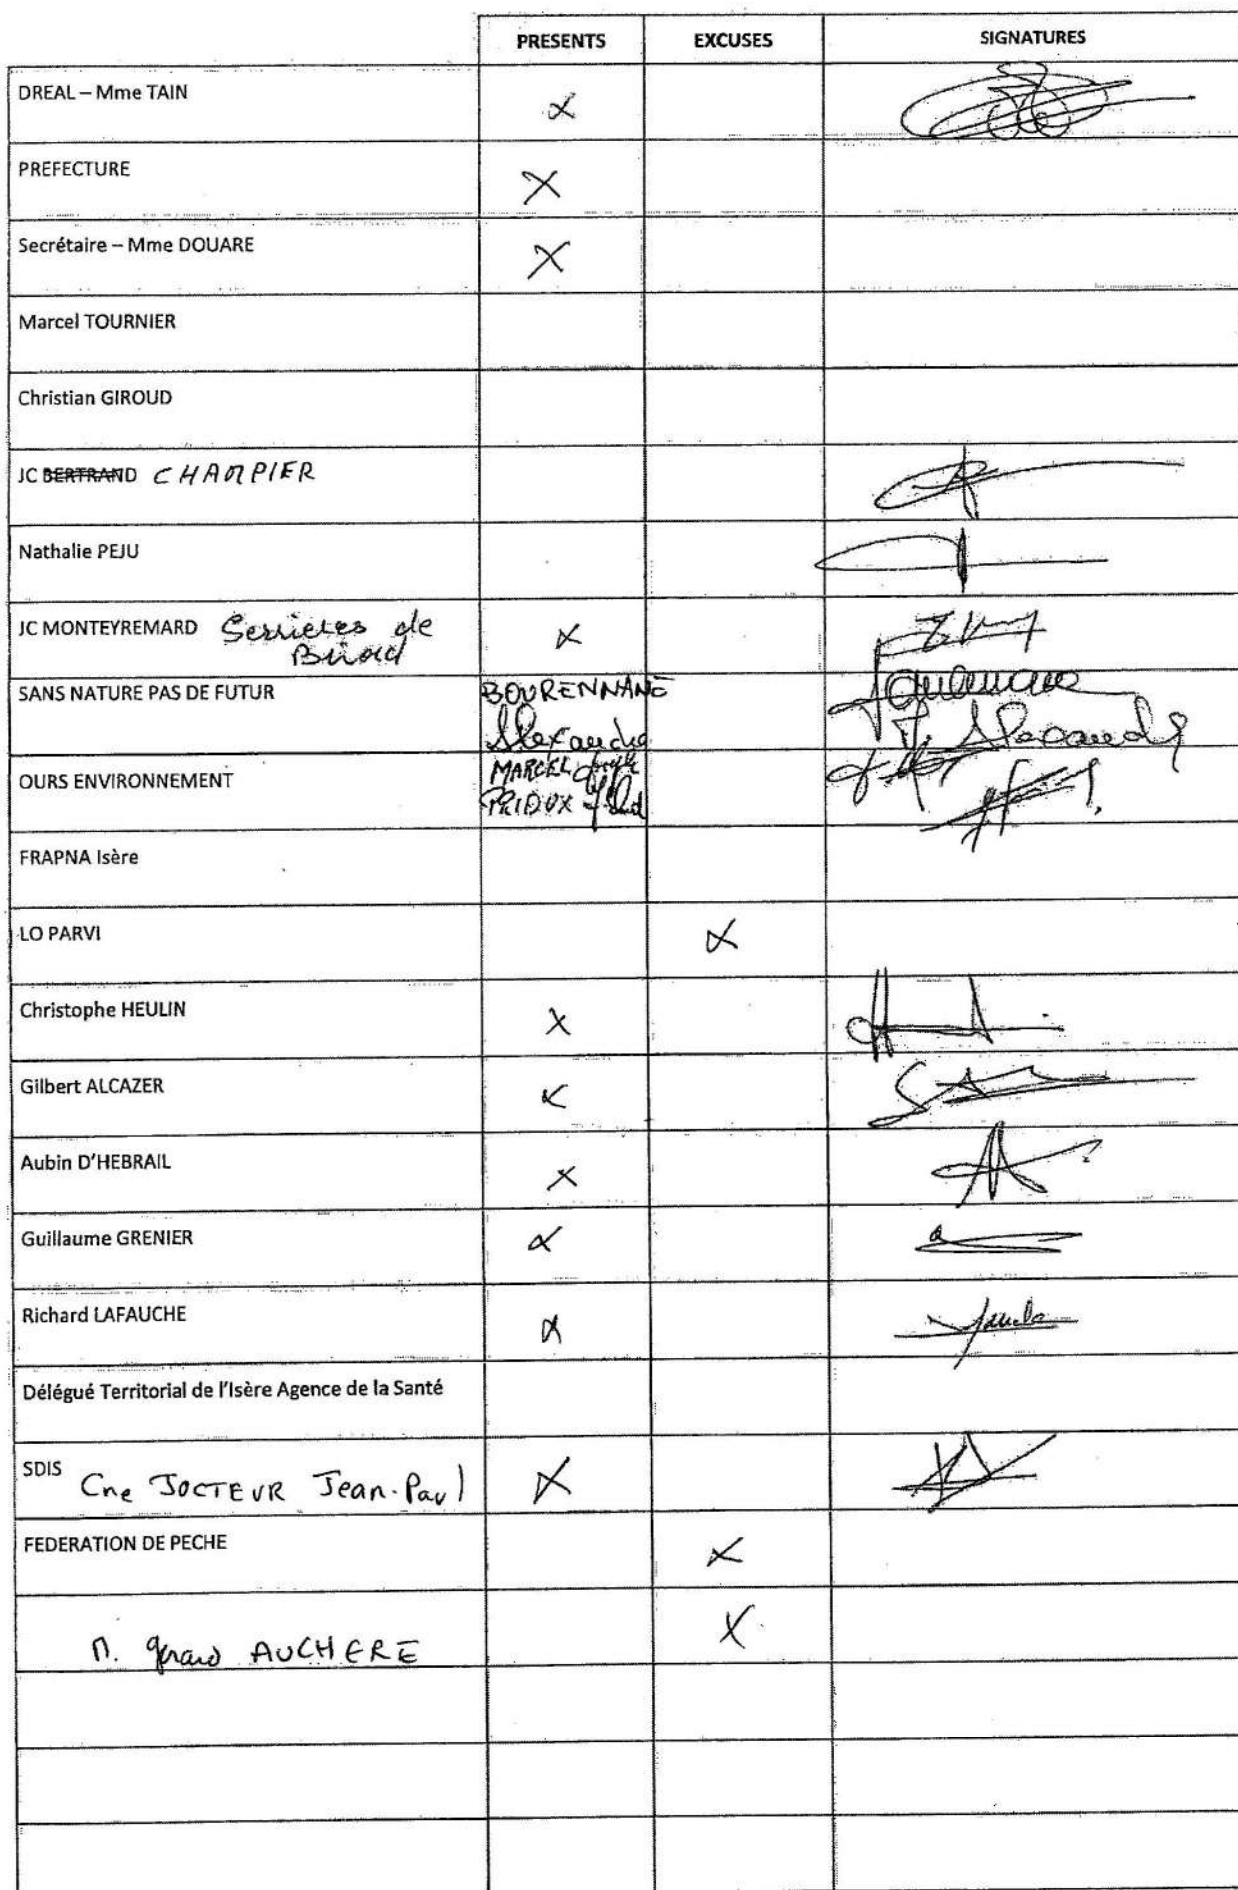 PRESENTS EXCUSES SIGNATURES
DREAL – Mme TAIN X
PREFECTURE X
Secrétaire – Mme DOUARE X
Marcel TOURNIER
Christian GIROUD
JC BERTRAND CHAMPIER
Nathalie PEJU
JC MONTEYREMARD Serrieres de X
Briord
SANS NATURE PAS DE FUTUR BOURENNANE
Alexandre
OURS ENVIRONNEMENT MARCEL
PRIDUX
FRAPNA Isère
LO PARVI X
Christophe HEULIN X
Gilbert ALCAZER X
Aubin D'HEBRAIL X
Guillaume GRENIER X
Richard LAFAUCHE X
Délégué Territorial de l'Isère Agence de la Santé
SDIS Cne JOCTEUR Jean-Paul X
FEDERATION DE PECHE X
M. Gérard AUCHERE X